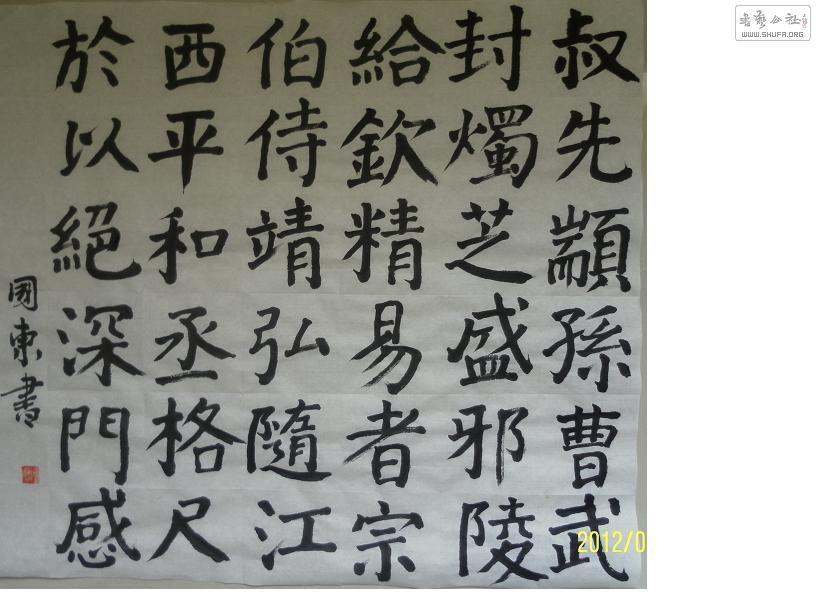 叔先顓孫曹武
封燭芝盛邪陵
給欽精易者宗
伯侍靖弘隨江
西平和丞格尺
於以絕深門感
國東書
2012/0
書藝公社
WWW.SHUFA.ORG